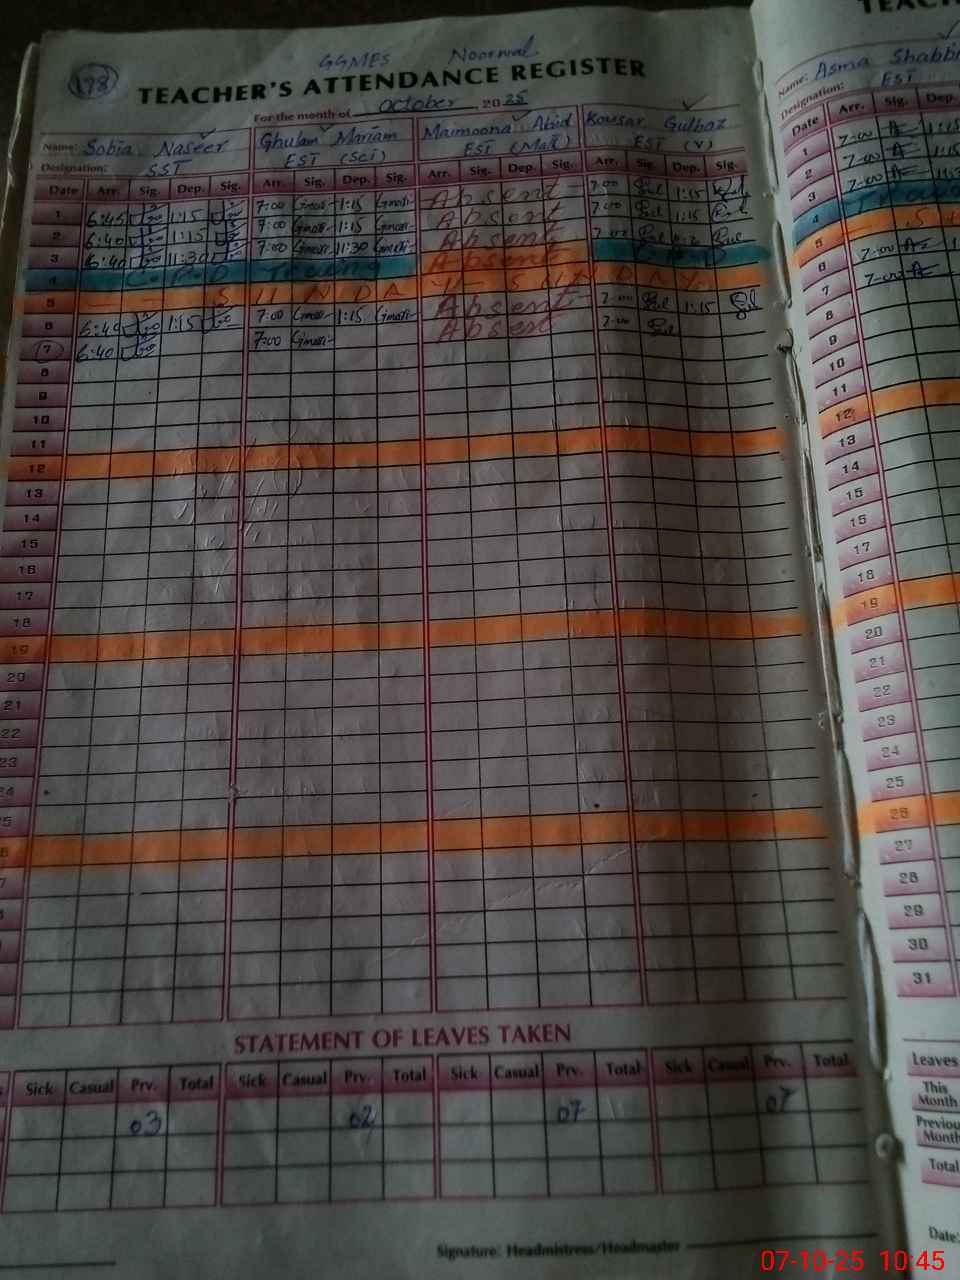 198
GGMES Noorwal
TEACHER'S ATTENDANCE REGISTER
For the month of October, 2025
Name: Sobia Naseer Ghulam Mariam Maimoona Abid Kousar Gulbaz
Designation: SST EST (Sci) EST (Mat) EST (V)
Date Arr. Sig. Dep. Sig. Arr. Sig. Dep. Sig. Arr. Sig. Dep. Sig. Arr. Sig. Dep. Sig.
1 6:45 1:15 7:00 1:15 Absent 7:00 1:15
2 6:40 1:15 7:00 1:15 Absent 7:00 1:15
3 6:40 11:30 7:00 11:30 Absent 7:00
4 C.P.D Absent C.P.D
5 S U N D A Y S U N D A Y
6 6:40 1:15 7:00 1:15 Absent 7:00 1:15
7 6:40 7:00 Absent 7:00
8
9
10
11
12
13
14
15
16
17
18
19
20
21
22
23
24
STATEMENT OF LEAVES TAKEN
Sick Casual Prv. Total Sick Casual Prv. Total Sick Casual Prv. Total Sick Casual Prv. Total
03 02 07 07
Signature: Headmistress/Headmaster
Name: Asma Shabbi
Designation: EST
Date Arr. Sig. Dep.
1 7-00 1:15
2 7-00 1:15
3 7-00
4
5 S
6 7-00
7 7-00
8
9
10
11
12
13
14
15
15
17
18
19
20
21
22
23
24
25
26
27
28
29
30
31
Leaves
This Month
Previou
Month
Total
Date:
07-10-25 10:45